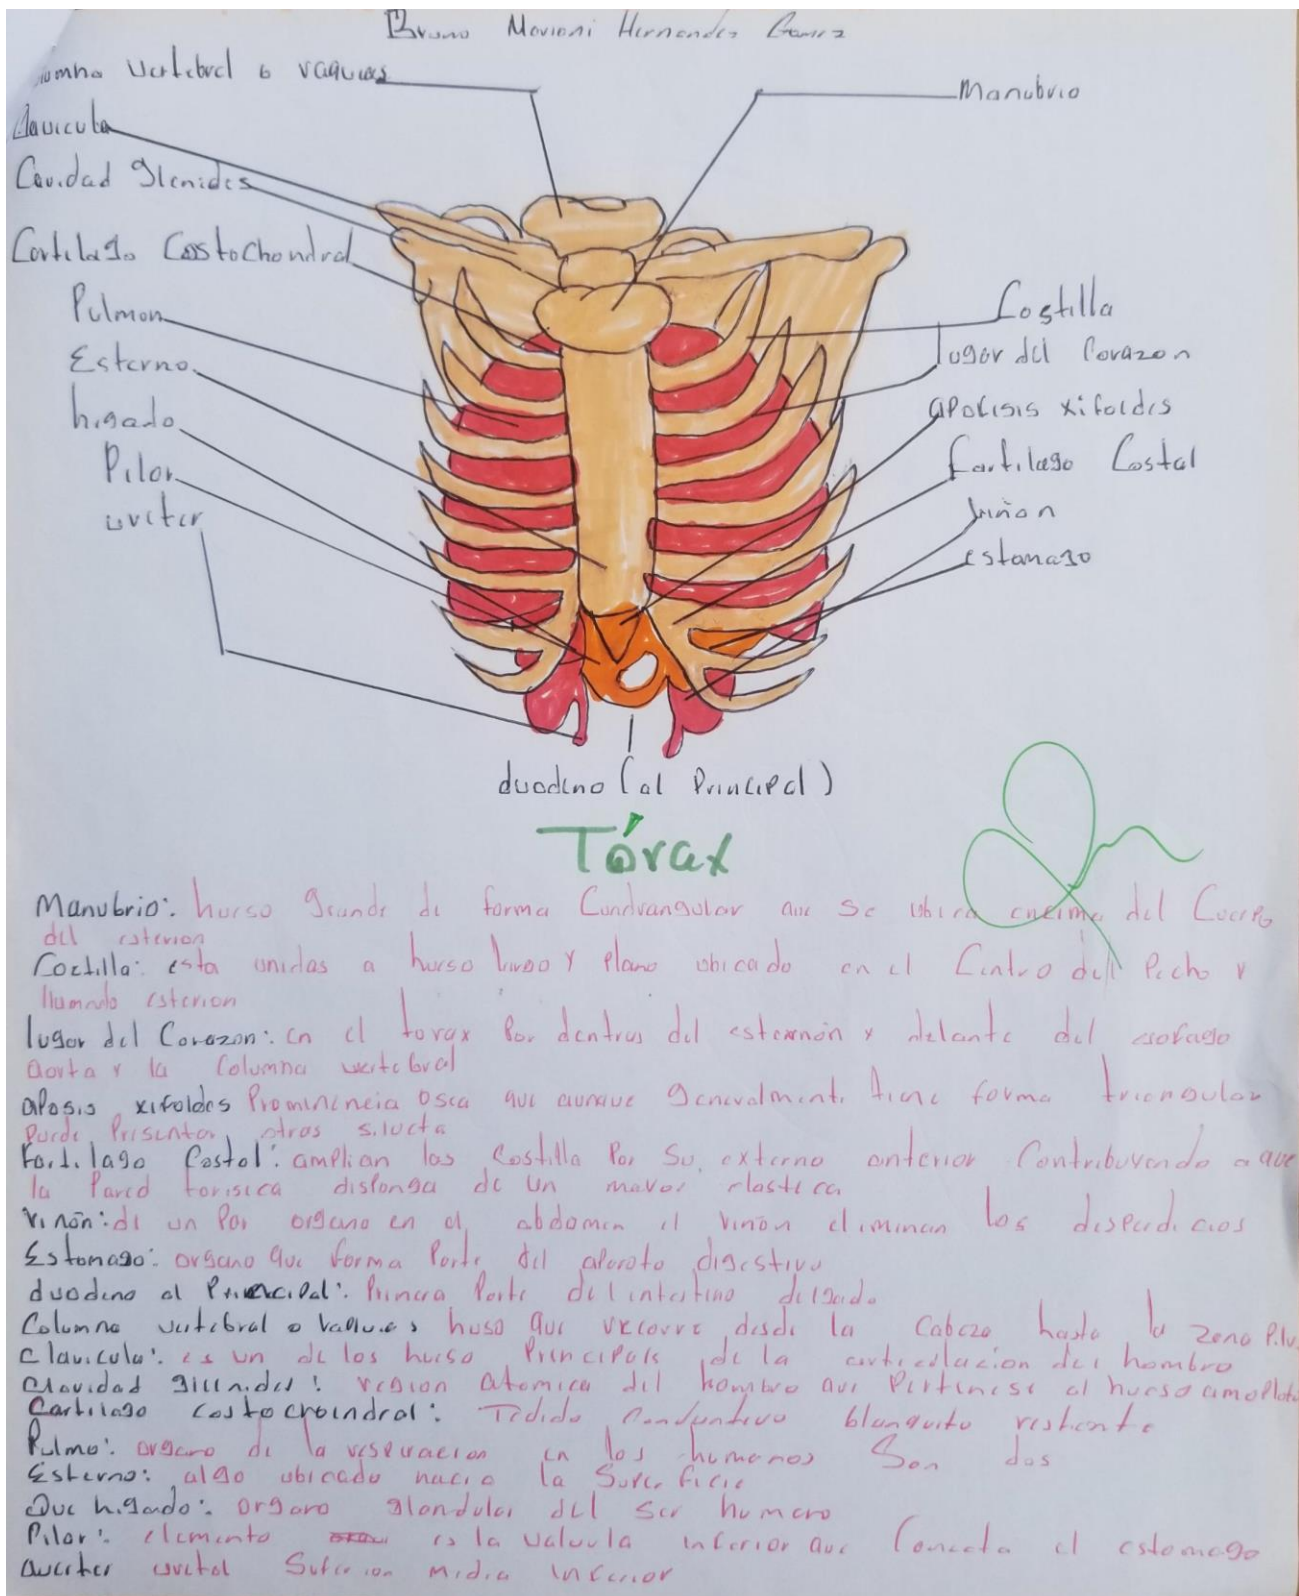 Bruno Mavioni Hernandez Gomez
lumna Vertebral o raquias
Manubrio
Clavicula
Cavidad glenides
Cartilago Costochondral
Pulmon
Esterno
higado
Pilor
ureter
Costilla
lugar del Corazon
apofisis xifoides
Cartilago Costal
riñon
estomago
duodeno (al Principal)
Tórax
Manubrio: hueso grande de forma Cundrangular que se ubica encima del Cuerpo
del esterion
Costilla: esta unidas a hueso largo y plano ubicado en el Centro del Pecho y
llamado esterion
lugar del Corazon: en el torax Por dentras del esternón y delante del esofago
aorta y la Columna vertebral
aposis xifoides Prominencia osea que aunque generalmente tiene forma triangular
puede Presentar otras silueta
Cartilago Costal: amplian las Costilla Por su externo anterior Contribuyendo a que
la Pared torisica disponga de un mayor elastica
riñón: di un Par organo en el abdomen el riñon eliminan los desperdicios
Estomago: organo que forma Parte del aparato digestivo
duodeno al Principal: Primera Parte del intestino delgado
Columna vertebral o raquias huso que recorre desde la Cabeza hasta la zona
Clavicula: es un de los hueso Principals de la articulacion del hombro
Cavidad glenides: region atomica del hombro que Pertinese al hueso
Cartilago costocroindral: Tedido blanquito
Pulmo: organo de la respiracion en los humanos Son dos
Esterno: algo ubicado hacia la Superficie
Que higado: organo glandular del ser humano
Pilor: elemento es la valvula inferior que Conecta el estomago
Superion midia inferior